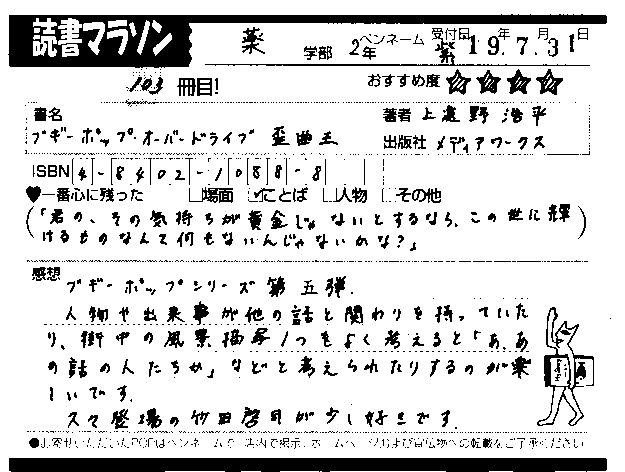 読書マラソン 薬 学部 2年 ペンネーム 紫 受付日 19年7月31日
103 冊目! おすすめ度 ☆☆☆☆
書名 著者 上遠野 浩平
ブギーポップ・オーバードライブ 歪曲王 出版社 メディアワークス
ISBN 4-8402-1088-8
♥一番心に残った □場面 ☑ことば □人物 □その他
(「君の、その気持ちが黄金じゃないとするなら、この世に輝
けるものなんて何もないんじゃないかな?」)
感想 ブギーポップシリーズ第五弾.
人物や出来事が他の話と関わりを持っていた
り、街中の風景描写1つをよく考えると「あ、あ
の話の人たちか」などと考えられたりするのが楽
しいです.
久々登場の竹田啓司が少し好きです.
●お寄せいただいたPOPはペンネームで、店内で掲示、ホームページおよび宣伝物への転載をご了承ください